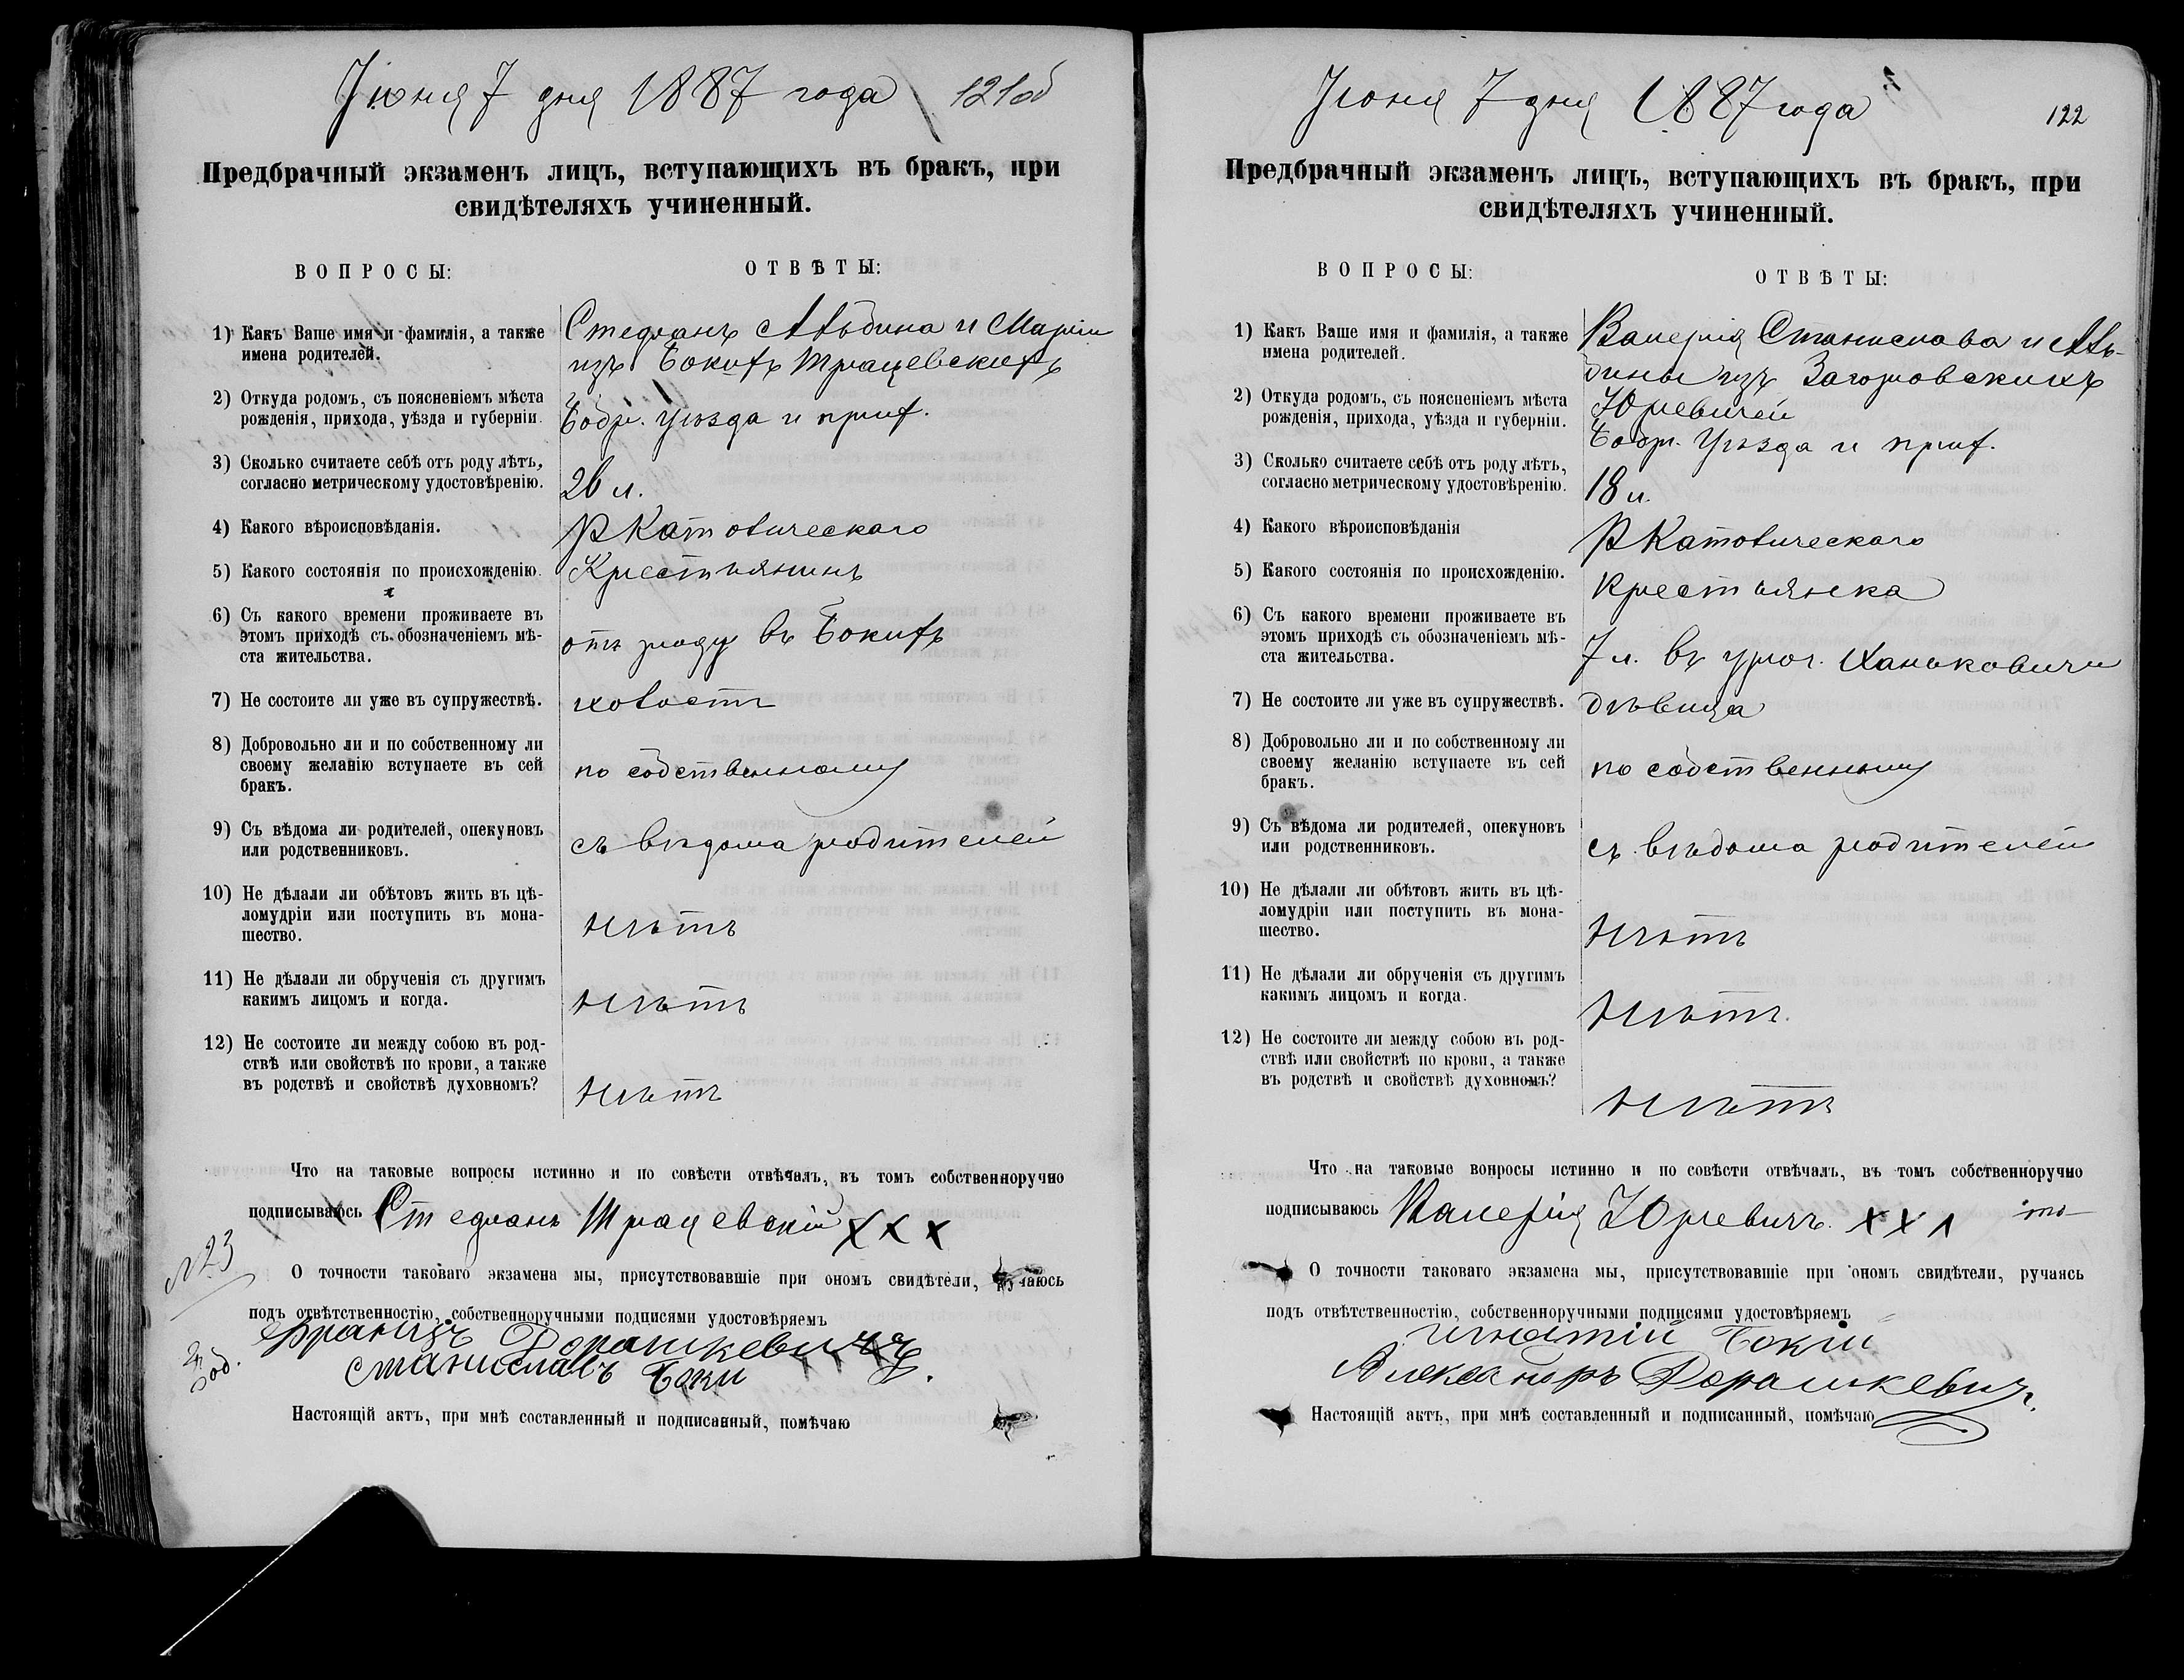 Іюня 7 дня 1887 года 121об
Предбрачный экзаменъ лицъ, вступающихъ въ бракъ, при
свидѣтеляхъ учиненный.
ВОПРОСЫ:
ОТВѢТЫ:
1) Какъ Ваше имя и фамилія, а также
имена родителей.
Стефанъ Альбина и Маріи
изъ Бокихъ Трацевскихъ
2) Откуда родомъ, съ поясненіемъ мѣста
рожденія, прихода, уѣзда и губерніи.
Бобр. уѣзда и прих.
3) Сколько считаете себѣ отъ роду лѣтъ,
согласно метрическому удостовѣренію.
26 л.
4) Какого вѣроисповѣданія.
Р Католическаго
5) Какого состоянія по происхожденію.
Крестьянинъ
6) Съ какого времени проживаете въ
этомъ приходѣ съ обозначеніемъ мѣ-
ста жительства.
отъ роду въ Бокихъ
7) Не состоите ли уже въ супружествѣ.
холостъ
8) Добровольно ли и по собственному ли
своему желанію вступаете въ сей
бракъ.
по собственному
9) Съ вѣдома ли родителей, опекуновъ
или родственниковъ.
съ вѣдома родителей
10) Не дѣлали ли обѣтовъ жить въ цѣ-
ломудріи или поступить въ мона-
шество.
нѣтъ
11) Не дѣлали ли обрученія съ другимъ
какимъ лицомъ и когда.
нѣтъ
12) Не состоите ли между собою въ род-
ствѣ или свойствѣ по крови, а также
въ родствѣ и свойствѣ духовномъ?
нѣтъ
Что на таковые вопросы истинно и по совѣсти отвѣчалъ, въ томъ собственноручно
подписываюсь Стефанъ Трацевскій ХХХ
№23
О точности таковаго экзамена мы, присутствовавшіе при ономъ свидѣтели, ручаюсь
подъ отвѣтственностію, собственноручными подписями удостовѣряемъ
Францъ Дорашкевичъ
Станиславъ Боки
Настоящій актъ, при мнѣ составленный и подписанный, помѣчаю
Іюня 7 дня 1887 года
122
Предбрачный экзаменъ лицъ, вступающихъ въ бракъ, при
свидѣтеляхъ учиненный.
ВОПРОСЫ:
ОТВѢТЫ:
1) Какъ Ваше имя и фамилія, а также
имена родителей.
Валерія Станислава и Аль-
бины изъ Загоровскихъ
Юревичей
2) Откуда родомъ, съ поясненіемъ мѣста
рожденія, прихода, уѣзда и губерніи.
Бобр. Уѣзда и прих.
3) Сколько считаете себѣ отъ роду лѣтъ,
согласно метрическому удостовѣренію.
18 л.
4) Какого вѣроисповѣданія
Р Католическаго
5) Какого состоянія по происхожденію.
Крестьянка
6) Съ какого времени проживаете въ
этомъ приходѣ съ обозначеніемъ мѣ-
ста жительства.
7 л. въ уроч. Ханьковичи
7) Не состоите ли уже въ супружествѣ.
дѣвица
8) Добровольно ли и по собственному ли
своему желанію вступаете въ сей
бракъ.
по собственному
9) Съ вѣдома ли родителей, опекуновъ
или родственниковъ.
съ вѣдома родителей
10) Не дѣлали ли обѣтовъ жить въ цѣ-
ломудріи или поступить въ мона-
шество.
нѣтъ
11) Не дѣлали ли обрученія съ другимъ
какимъ лицомъ и когда.
нѣтъ.
12) Не состоите ли между собою въ род-
ствѣ или свойствѣ по крови, а также
въ родствѣ и свойствѣ духовномъ?
нѣтъ
Что на таковые вопросы истинно и по совѣсти отвѣчалъ, въ томъ собственноручно
подписываюсь Валерія Юревичъ. ХХХ
О точности таковаго экзамена мы, присутствовавшіе при ономъ свидѣтели, ручаясь
подъ отвѣтственностію, собственноручными подписями удостовѣряемъ
Игнатій Бокій
Александръ Дорашкевичъ.
Настоящій актъ, при мнѣ составленный и подписанный, помѣчаю